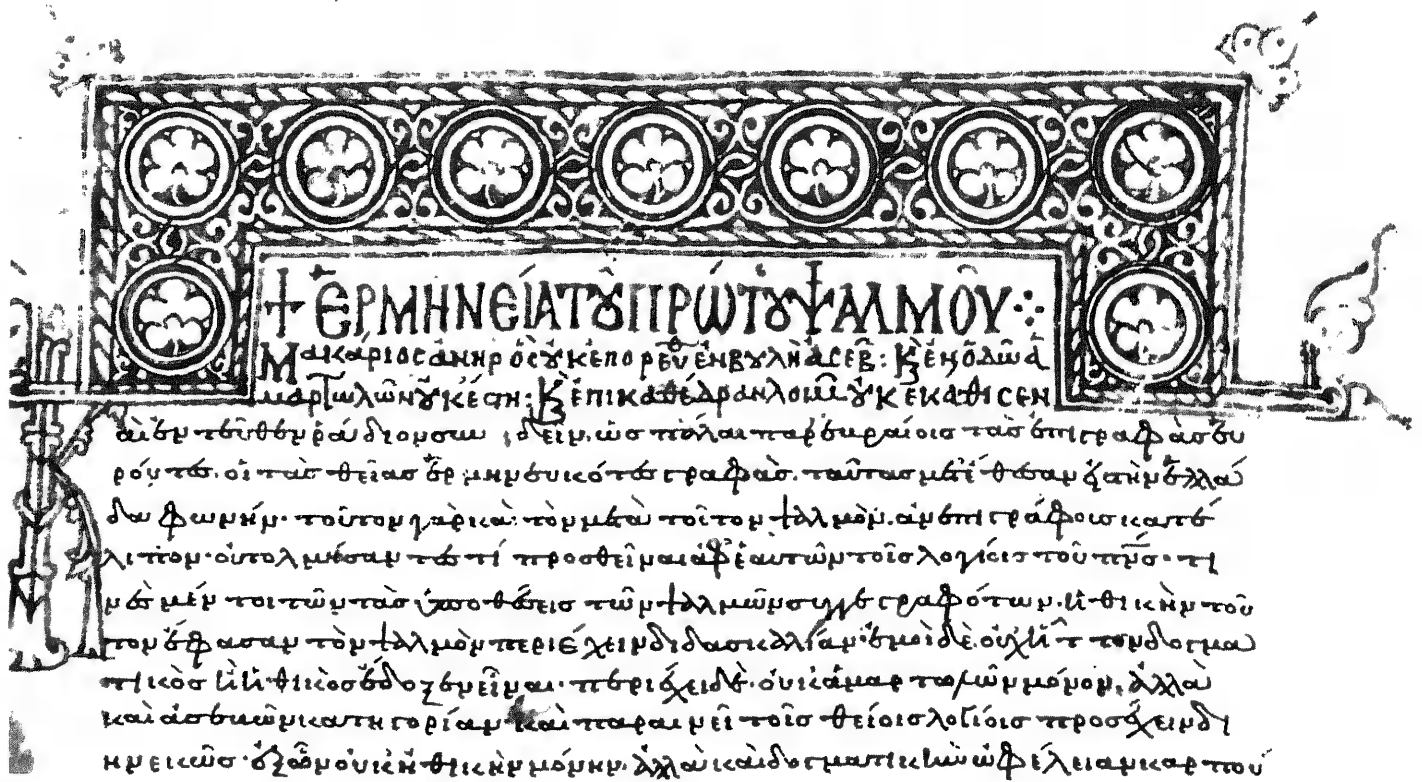 + ἙΡΜΗΝΕΊΑ ΤΟῦ ΠΡΏΤΟΥ ΨΑΛΜΟῦ
Μακάριος ἀνὴρ ὃς οὐκ ἐπορεύθ ἐν βουλῆ ἀσεβ : Κ ἐν ὁδῶ ἁ
μαρτωλῶν οὐκ ἔστη : Κ ἐπὶ καθέδραν λοιμ οὐκ ἐκάθισεν
ἀὶ ἐντεῦθεν ῥάδιον συνιδεῖν. ὡς πάλαι παρ ἑβραίοις τὰς ἐπιγραφὰς εὑ
ρόντες. οἱ τὰς θείας ἑρμηνευκότες γραφὰς. ταύτας μετέθεσαν εἰς τὴν ἑλλά
δα φωνήν· τοῦτον γὰρ καὶ τὸν μετὰ τοῦτον ψαλμὸν. ἀνεπιγράφους κατέ
λιπον· οὐ τολμήσαντές τί προσθεῖναι ἀφ ἑαυτῶν τοῖς λογίοις τοῦ πνς· τι
νὲς μέν τοι τῶν τὰς ὑποθέσεις τῶν ψαλμῶν συγγεγραφότων. ἠθικὴν τοῦ
τον ἔφασαν τὸν ψαλμὸν περιέχειν διδασκαλίαν· ἐμοὶ δὲ. οὐχ ἧττον δογμα
τικὸς ἢ ἠθικὸς ἔδοξεν εἶναι· περιέχει δὲ. οὐκ ἁμαρτωλῶν μόνον, ἀλλὰ
καὶ ἀσεβῶν κατηγορίαν· καὶ παραινεῖ τοῖς θείοις λογίοις προσέχειν δι
ηνεκῶς· ἐξ ὧν οὐκ ἠθικὴν μόνην. ἀλλὰ καὶ δογματικὴν ὠφέλειαν καρπού